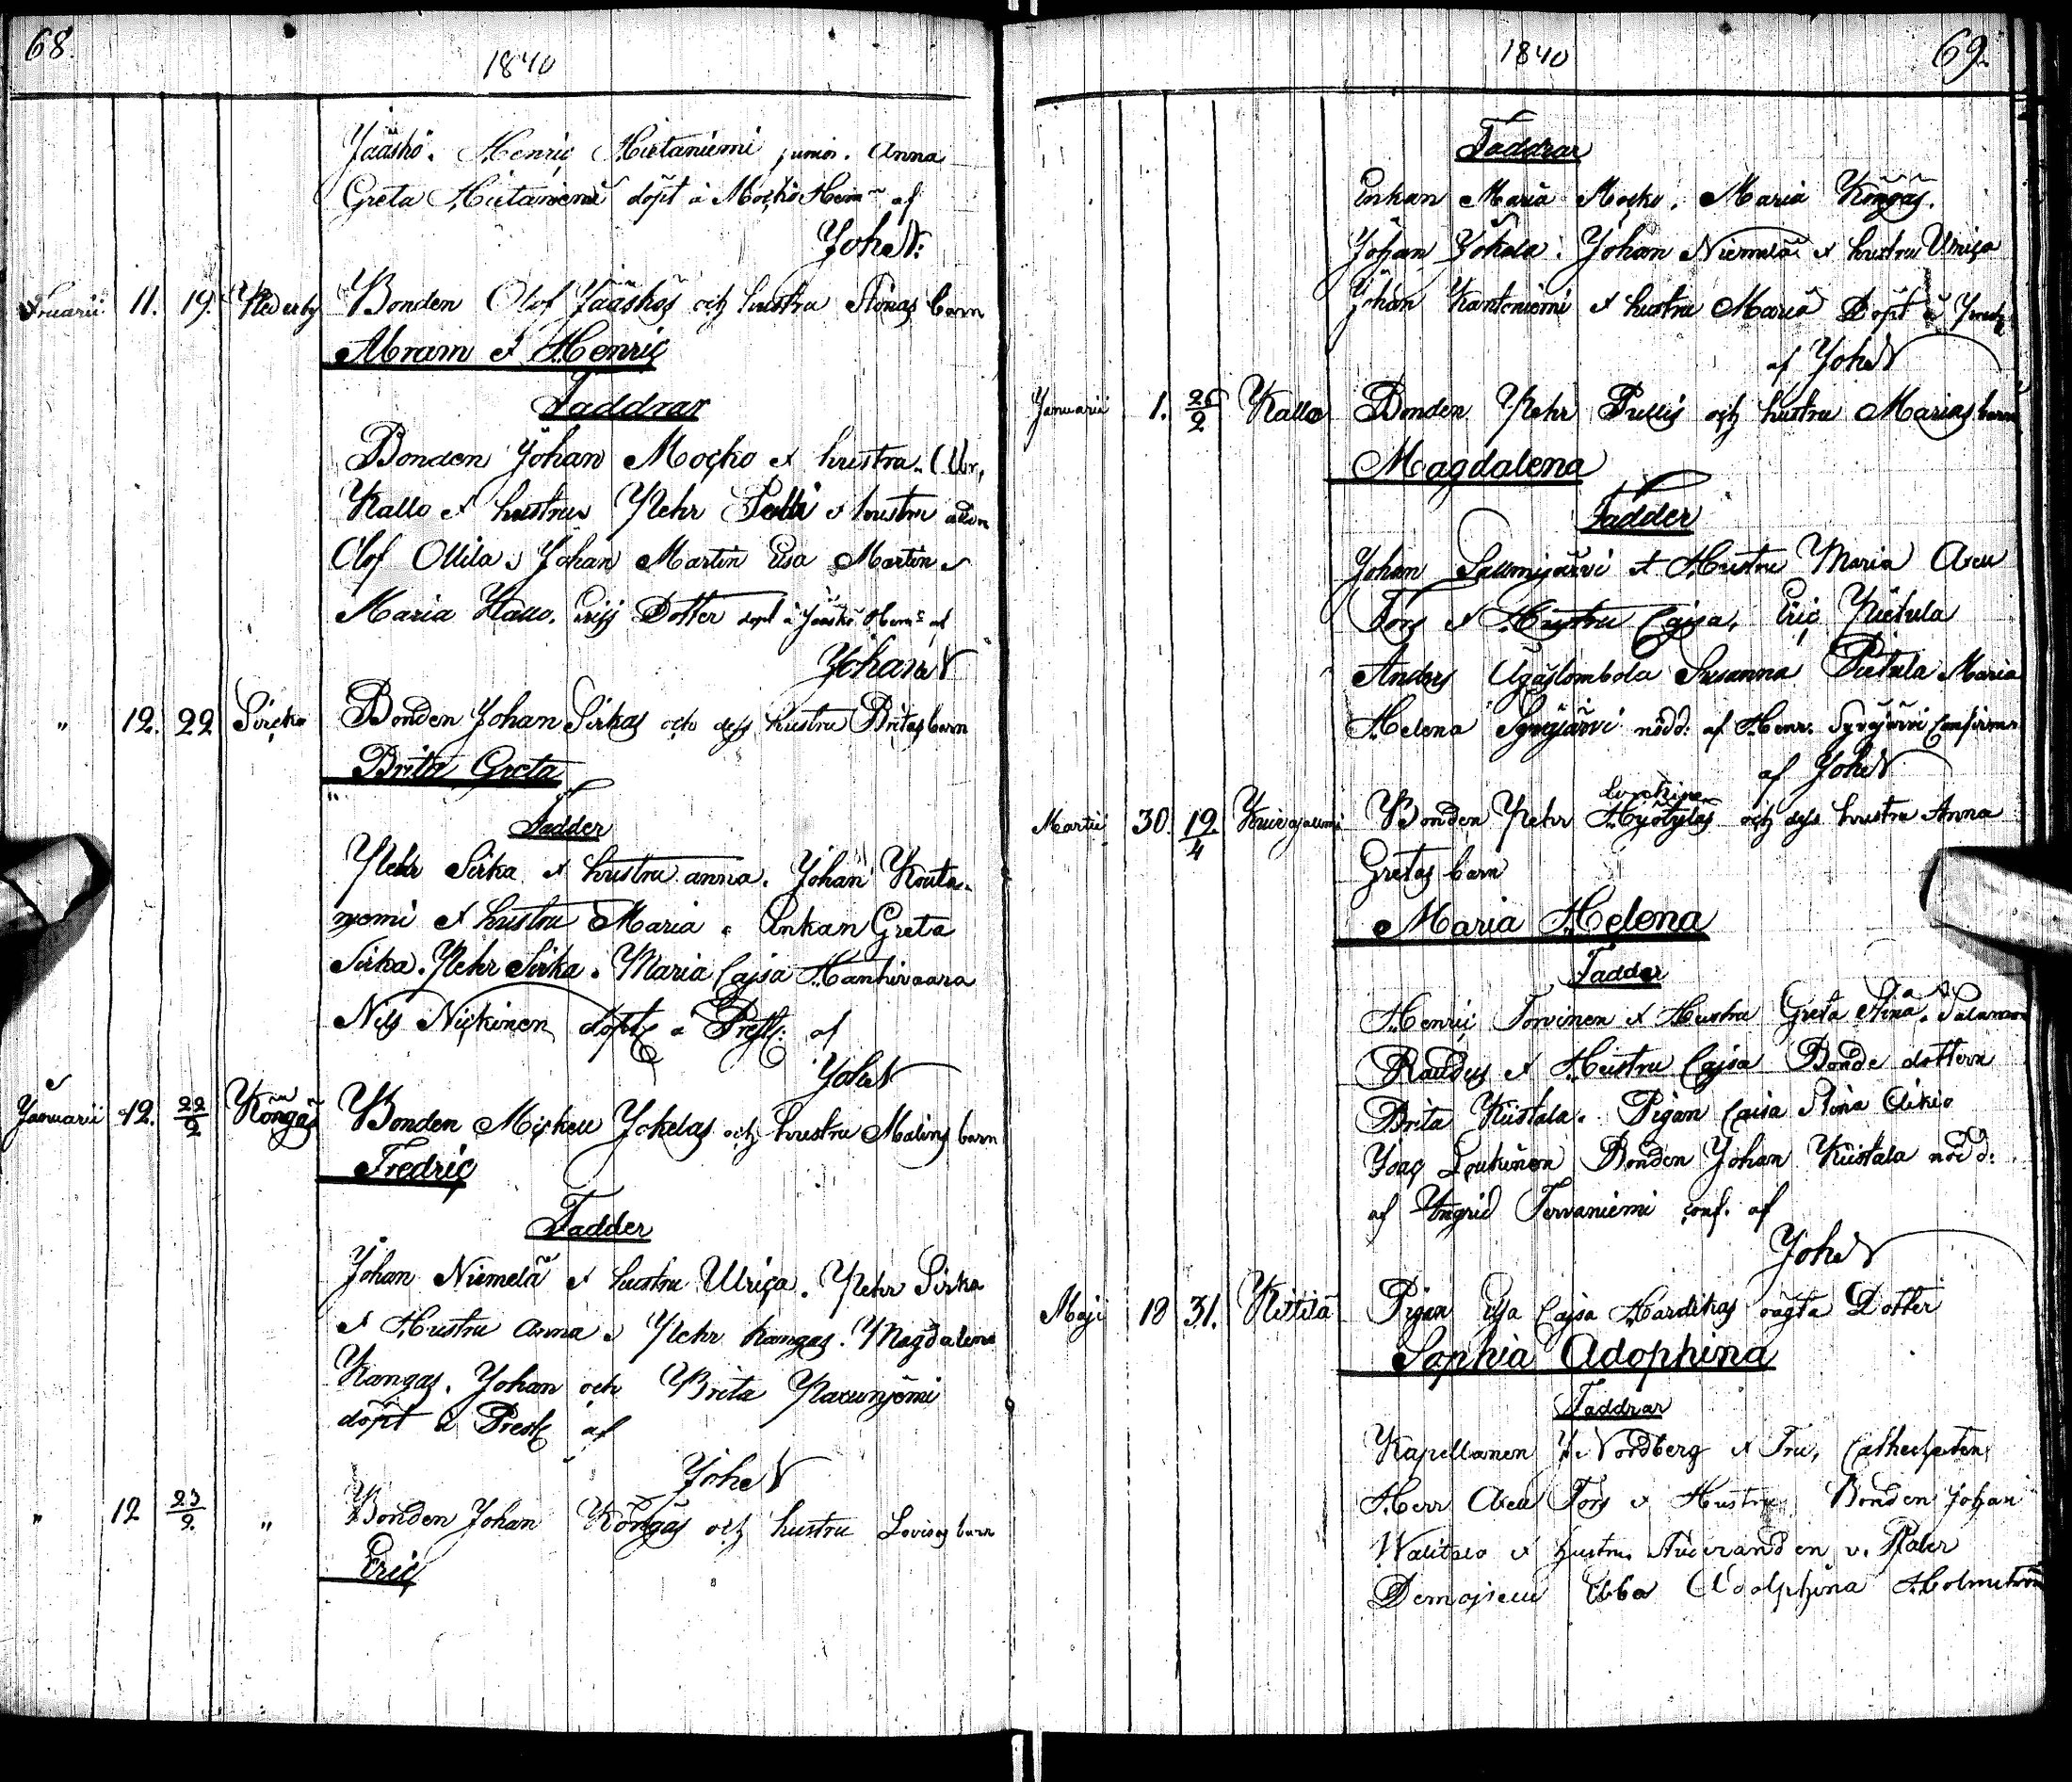 68.
1840
Jääskö. Henric Hietaniemi junior. Anna
Greta Hietaniemi döpt å Mocko Hem:n af
Joh. N:
Februarii 11. 19. Nederby Bonden Olof Jääskös och hustru Stinas barn
Abram & Henric
Faddrar
Bonden Johan Mocko & hustru
Kallo & hustru Pehr Pulli & hustru
Olof Ollila Johan Martin Elsa Martin
Maria Kallo. Dotter döpt å Jääskö Hem:n af
Johan N
" 12. 22 Sircka Bonden Johan Sirkas och dess hustru Britas barn
Brita Greta
Fadder
Pehr Sirka & hustru anna. Johan Kouta-
niemi & hustru Maria. Enkan Greta
Sirka. Pehr Sirka. Maria Cajsa Hanhivaara
Nils Nickinen döpt å Prest: af
Joh. N
Januarii 12. 22/2 Köngäs Bonden Mickell Jokelas och hustru Malins barn
Fredric
Fadder
Johan Niemelä & hustru Ulrica. Pehr Sirka
& Hustru Anna & Pehr Kangas. Magdalena
Kangas. Johan och Brita
döpt å Prest af
Joh. N
" 12 23/2. " Bonden Johan Köngäs och hustru Lovisas barn
Eric
1840
69.
Faddrar
Enkan Maria Mocko. Maria Köngäs.
Johan Jokela. Johan Niemelä & hustru Ulrica
Johan Kantoniemi & hustru Maria Döpt å
af Joh. N
Januarii 1. 26/2 Kallo Bonden Pehr Pullis och hustru Marias barn
Magdalena
Fadder
Johan Saumijärvi & Hustru Maria Axel
Fors & Hustru Cajsa, Eric Pietula
Anders Äkäslombola Susanna Pietula Maria
Helena Syväjärvi nödd: af Henr. Syväjärvi Confirmer
af Joh. N
Martii 30. 19./4 Bonden Pehr Hyötyläs och dess hustru Anna
Gretas barn
Maria Helena
Fadder
Henric Torvinen & Hustru Greta Stina. Salamon
Raudus & Hustru Cajsa Bonde dottern
Brita Kiistala. Pigan Caisa Stina Aikio
Isac Loukinen Bonden Johan Kiistala nöd d:
af Ingrid Tervaniemi conf. af
Joh. N
Maji 18 31. Kittilä Pigan Elsa Cajsa Hardikas oägta Dotter
Sophia Adophina
Faddrar
Kapellanen J. Nordberg & Fru, Catecheten
Herr Axel Fors & Hustru Bonden Johan
Walitalo & hustru Studeranden v. Platér
Demoiselle Ebba Adolphina Holmström